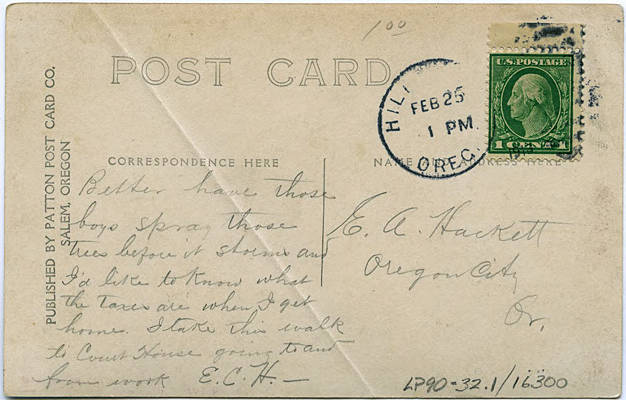 1 00
POST CARD
U.S. POSTAGE
1 CENT 1
HIL
FEB 25
1 PM.
OREG.
CORRESPONDENCE HERE
NAME AND ADDRESS HERE
PUBLISHED BY PATTON POST CARD CO.
SALEM, OREGON
Better have those
boys spray those
trees before it storms and
I'd like to know what
the taxes are when I get
home. I take this walk
to Court House going to and
from work E.C.H.—
E. A. Hackett
Oregon City
Or.
LP90-32.1/16300